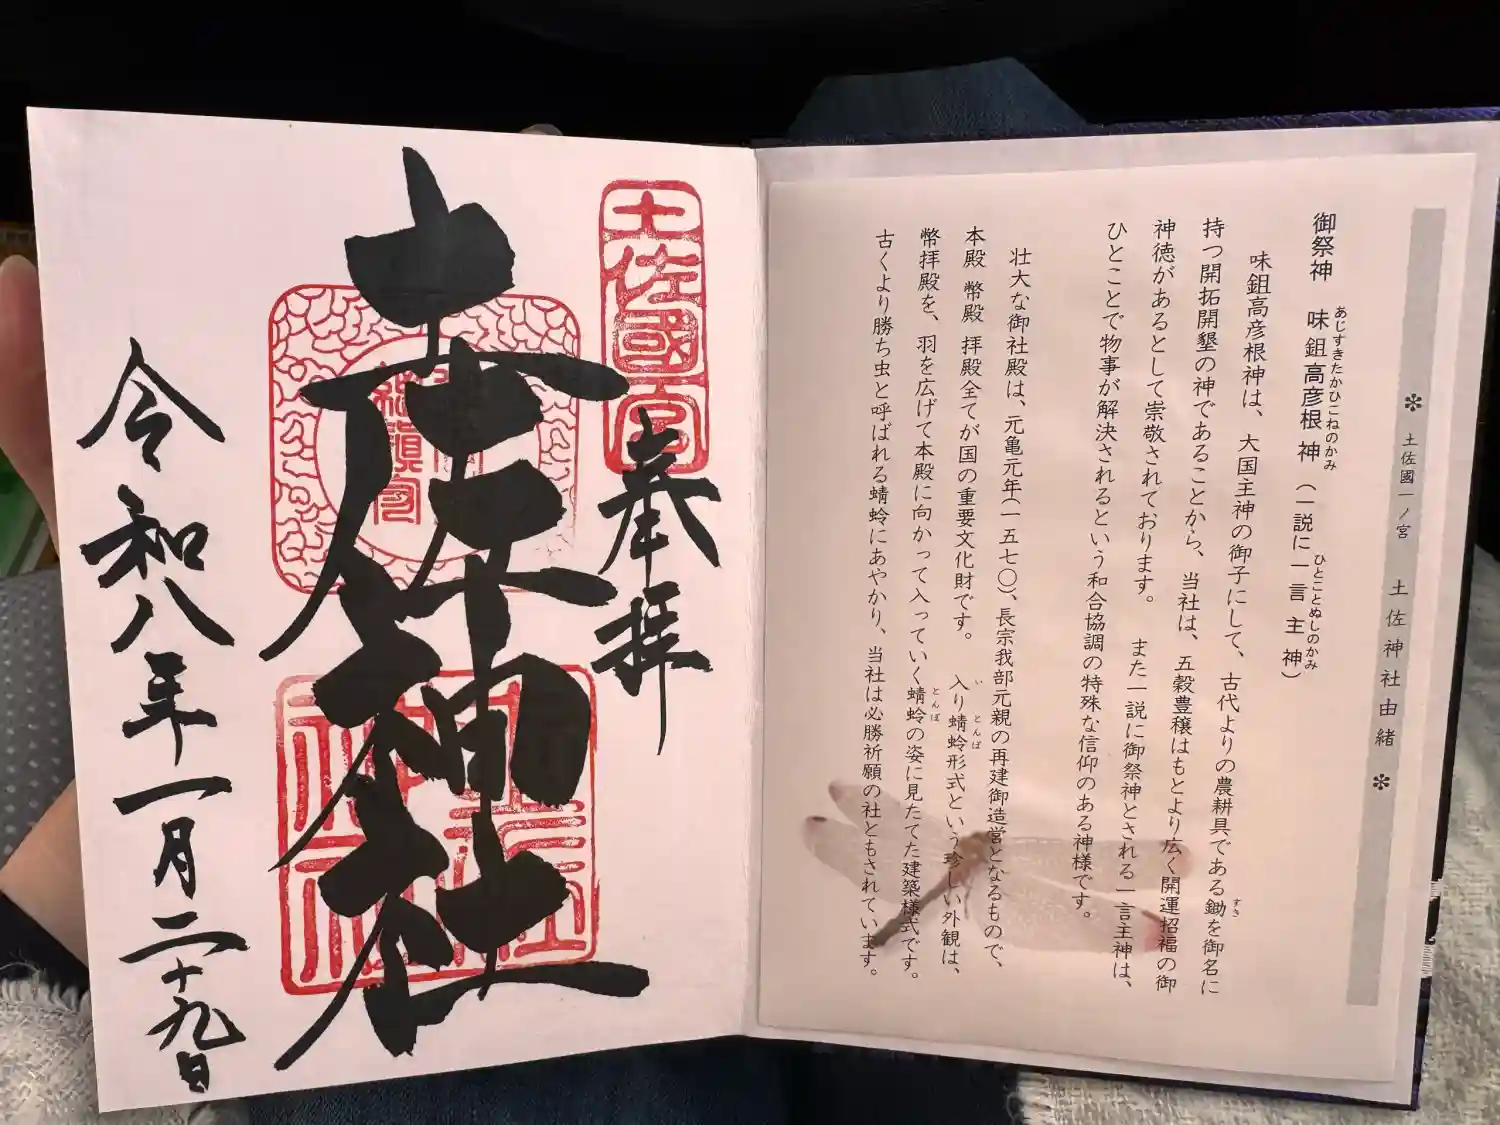 ✻ 土佐國一ノ宮 土佐神社由緒 ✻
御祭神 味鉏高彦根神(一説に一言主神)
あじすきたかひこねのかみ
ひとことぬしのかみ
味鉏高彦根神は、大国主神の御子にして、古代よりの農耕具である鋤を御名に
すき
持つ開拓開墾の神であることから、当社は、五穀豊穣はもとより広く開運招福の御
神徳があるとして崇敬されております。 また一説に御祭神とされる一言主神は、
ひとことで物事が解決されるという和合協調の特殊な信仰のある神様です。
壮大な御社殿は、元亀元年(一五七〇)、長宗我部元親の再建御造営となるもので、
本殿 幣殿 拝殿全てが国の重要文化財です。 入り蜻蛉形式という珍しい外観は、
い とんぼ
幣拝殿を、羽を広げて本殿に向かって入っていく蜻蛉の姿に見たてた建築様式です。
とんぼ
古くより勝ち虫と呼ばれる蜻蛉にあやかり、当社は必勝祈願の社ともされています。
土佐國一宮
奉拝
土佐神社
令和八年一月二十九日